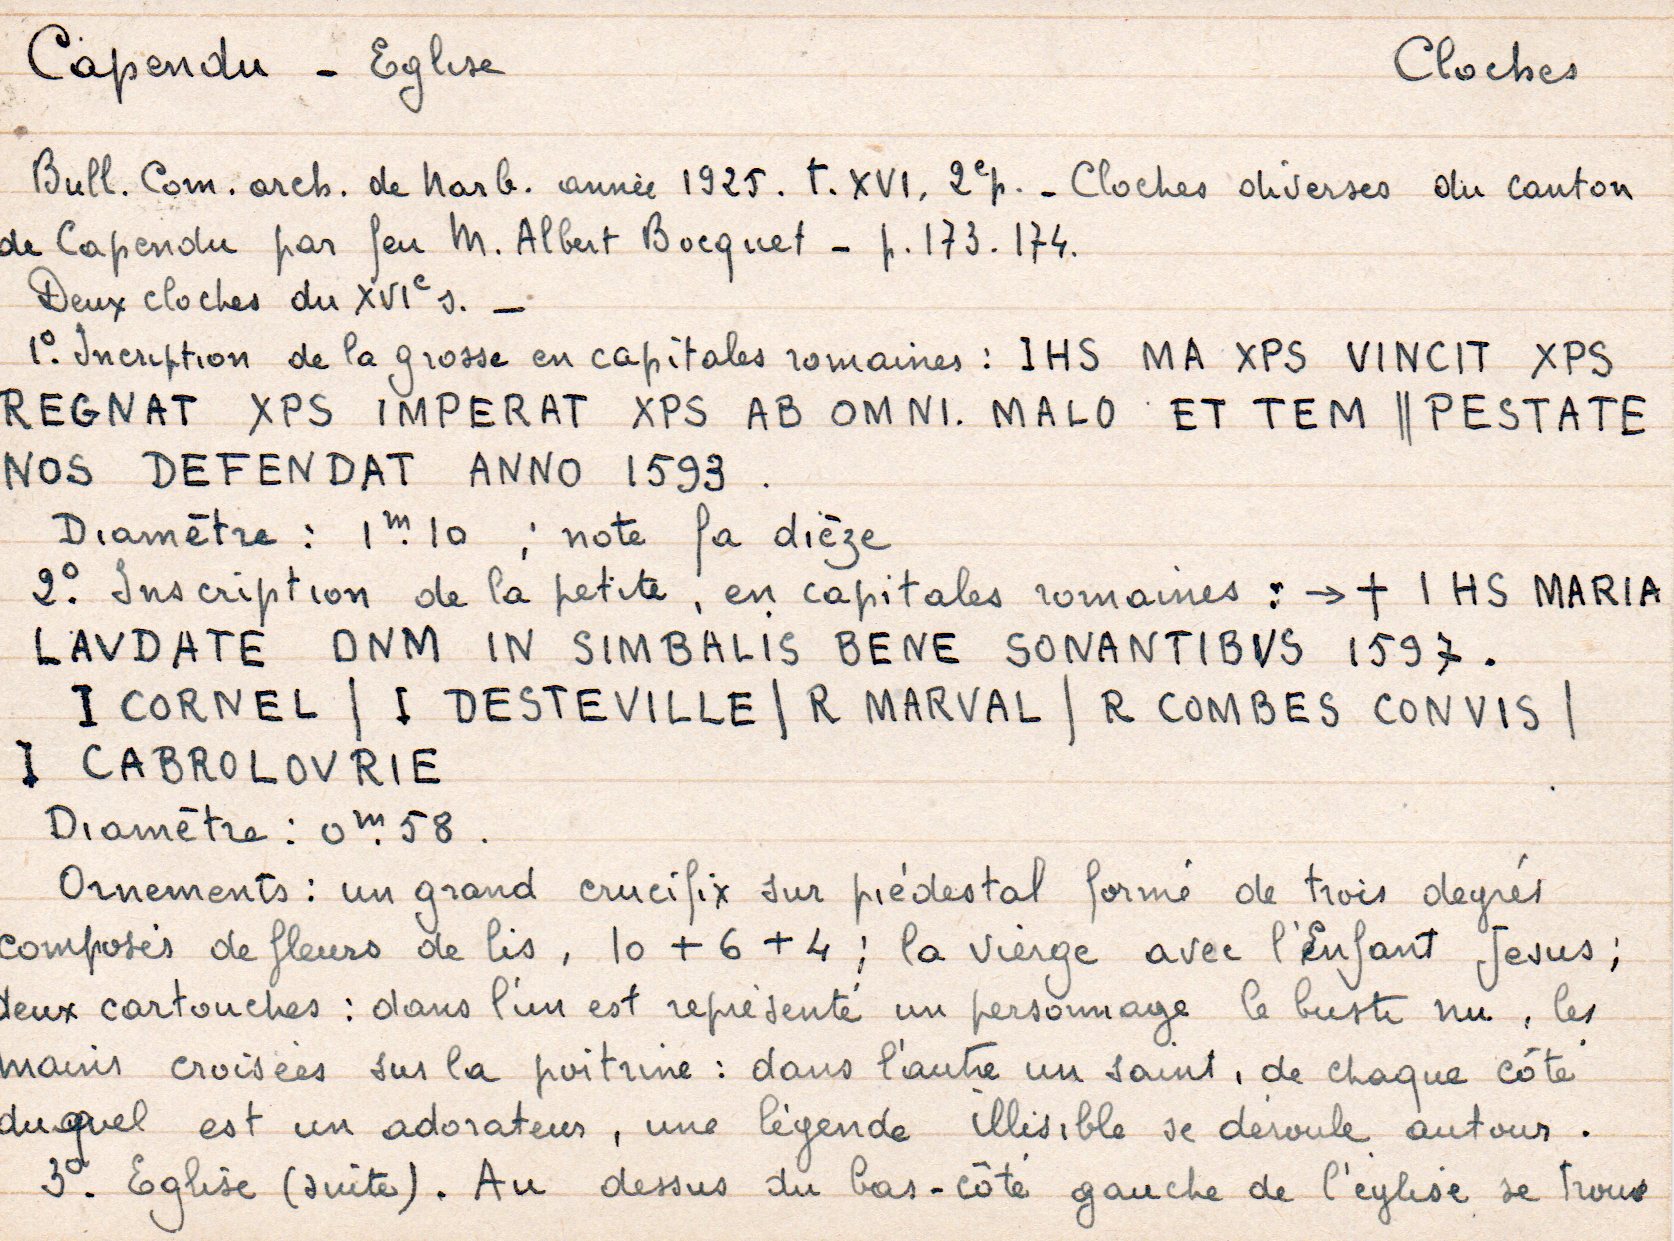 Capendu - Eglise Cloches
Bull. Com. arch. de Narb. année 1925. t. XVI, 2e p. - Cloches diverses du canton
de Capendu par feu M. Albert Bocquet - p. 173. 174.
Deux cloches du XVIe s. -
1º. Incription de la grosse en capitales romaines : IHS MA XPS VINCIT XPS
REGNAT XPS IMPERAT XPS AB OMNI. MALO ET TEM || PESTATE
NOS DEFENDAT ANNO 1593.
Diamètre : 1m.10 ; note fa dièze
2º. Inscription de la petite, en capitales romaines : → † IHS MARIA
LAVDATE DNM IN SIMBALIS BENE SONANTIBVS 1597.
I CORNEL | I DESTEVILLE | R MARVAL | R COMBES CONVIS |
I CABROLOVRIE
Diamètre : 0m.58.
Ornements : un grand crucifix sur piédestal formé de trois degrés
composés de fleurs de lis, 10 + 6 + 4 ; la vierge avec l'Enfant Jesus ;
deux cartouches : dans l'un est représenté un personnage le buste nu, les
mains croisées sur la poitrine : dans l'autre un saint, de chaque côté
duquel est un adorateur, une légende illisible se déroule autour.
3º. Eglise (suite). Au dessus du bas-côté gauche de l'église se trouve